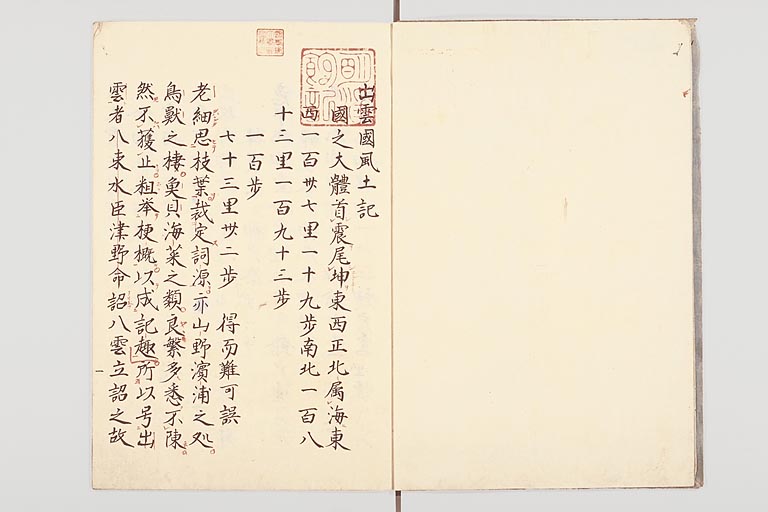 出雲國風土記
國之大體首震尾坤東西正北属海東
西一百丗七里一十九歩南北一百八
十三里一百九十三歩
一百歩
七十三里丗二歩　得而難可誤
老細思枝葉裁定詞源亦山野濱浦之処
鳥獸之棲魚貝海菜之類良繁多悉不陳
然不獲止粗挙梗概以成記趣所以号出
雲者八束水臣津野命詔八雲立詔之故
一